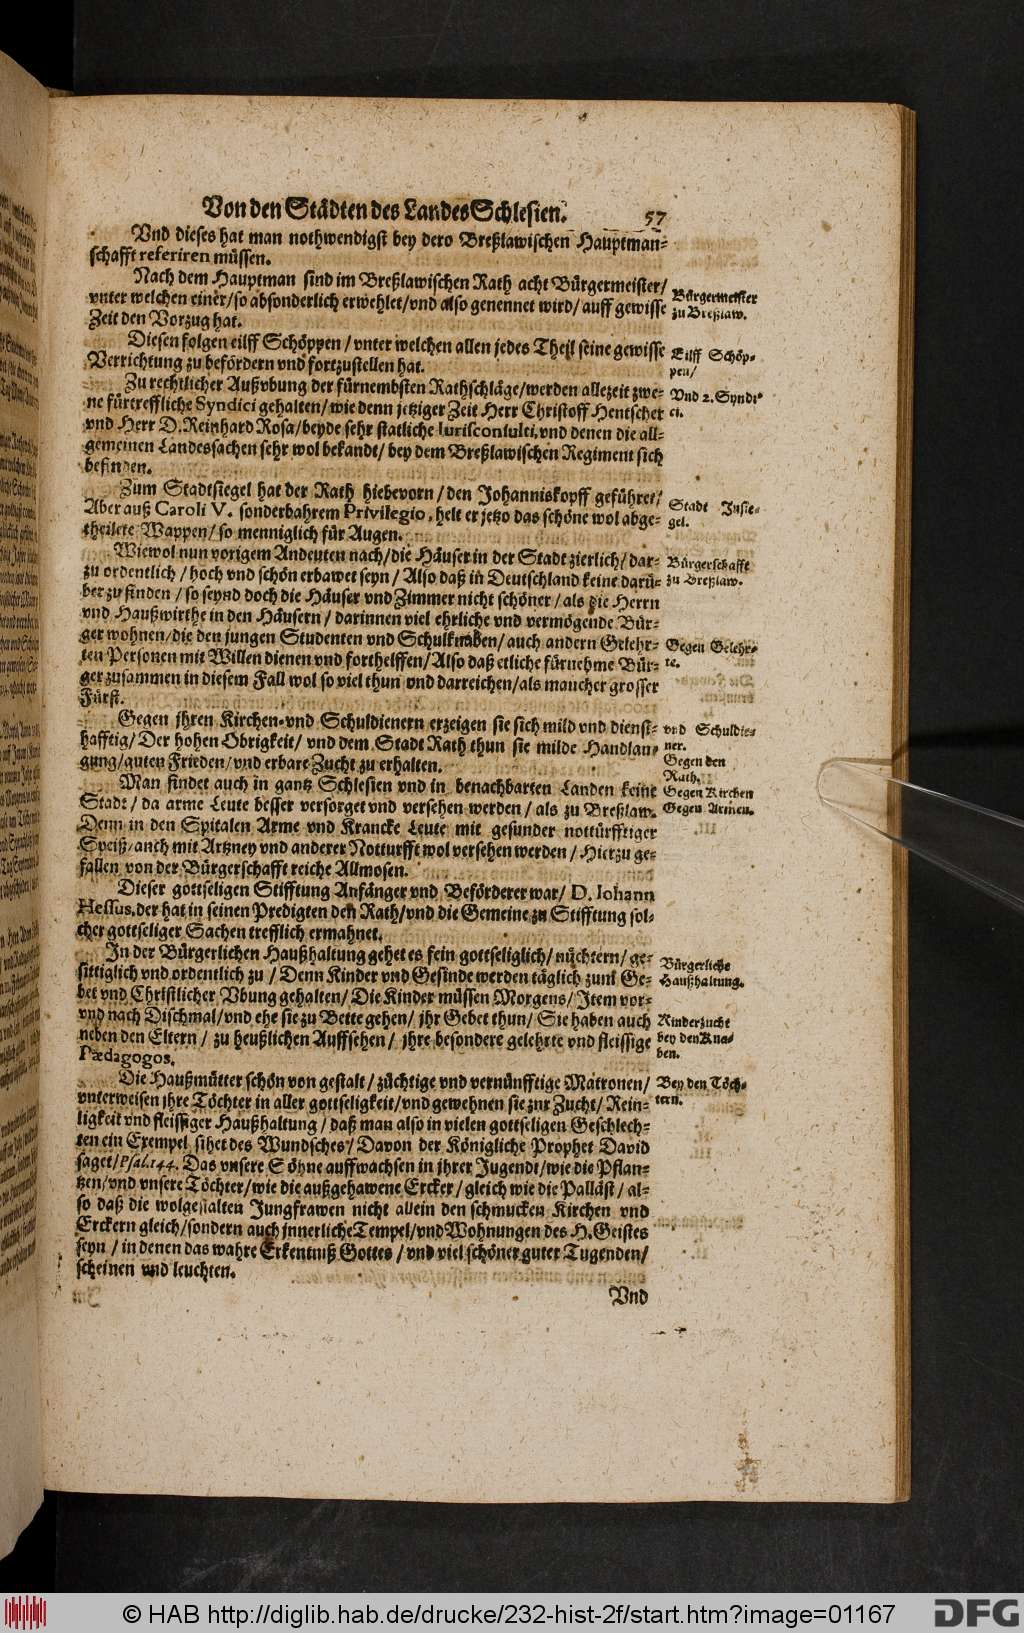 Von den Städten des Landes Schlesien. 57
Vnd dieses hat man nothwendigst bey dero Breßlawischen Hauptman-
schafft referiren müssen.
Nach dem Hauptman sind im Breßlawischen Rath acht Bürgermeister/
vnter welchen einer/so absonderlich erwehlet/vnd also genennet wird/auff gewisse
Zeit den Vorzug hat.
Bürgermeister
zu Breßlaw.
Diesen folgen eilff Schöppen/vnter welchen allen jedes Theil seine gewisse
Verrichtung zu befördern vnd fortzustellen hat.
Eilff Schöp-
pen/
Zu rechtlicher Außvbung der fürnembsten Rathschläge/werden allezeit zwe-
ne fürtreffliche Syndici gehalten/wie denn jetziger Zeit Herr Christoff Hentschel
vnd Herr D. Reinhard Rosa/beyde sehr statliche Iurisconsulti, vnd denen die all-
gemeinen Landessachen sehr wol bekandt/bey dem Breßlawischen Regiment sich
befinden.
Vnd 2. Syndi-
ci.
Zum Stadtsiegel hat der Rath hiebevorn/den Johanniskopff geführet/
Aber auß Caroli V. sonderbahrem Privilegio, helt er jetzo das schöne wol abge-
theilete Wappen/so menniglich für Augen.
Stadt Insie-
gel.
Wiewol nun vorigem Andeuten nach/die Häuser in der Stadt zierlich/dar-
zu ordentlich/hoch vnd schön erbawet seyn/Also daß in Deutschland keine darü-
ber zu finden/so seynd doch die Häuser vnd Zimmer nicht schöner/als die Herrn
vnd Haußwirthe in den Häusern/darinnen viel ehrliche vnd vermögende Bür-
ger wohnen/die den jungen Studenten vnd Schulknaben/auch andern Gelehr-
ten Personen mit Willen dienen vnd forthelffen/Also daß etliche fürnehme Bür-
ger zusammen in diesem Fall wol so viel thun vnd darreichen/als mancher grosser
Fürst.
Bürgerschafft
zu Breßlaw.
Gegen Gelehr-
te.
Gegen jhren Kirchen-vnd Schuldienern erzeigen sie sich mild vnd dienst-
hafftig/Der hohen Obrigkeit/vnd dem Stadt Rath thun sie milde Handlan-
gung/guten Frieden/vnd erbare Zucht zu erhalten.
vnd Schuldie-
ner.
Gegen den
Rath.
Man findet auch in gantz Schlesien vnd in benachbarten Landen keine
Stadt/da arme Leute besser versorget vnd versehen werden/als zu Breßlaw.
Denn in den Spitalen Arme vnd Krancke Leute mit gesunder nottürfftiger
Speiß/auch mit Artzney vnd anderer Notturfft wol versehen werden/Hierzu ge-
fallen von der Bürgerschafft reiche Allmosen.
Gegen Kirchen
Gegen Armen.
Dieser gottseligen Stifftung Anfänger vnd Beförderer war/D. Iohann
Hessus, der hat in seinen Predigten den Rath/vnd die Gemeine zu Stifftung sol-
cher gottseliger Sachen trefflich ermahnet.
In der Bürgerlichen Haußhaltung gehet es fein gottseliglich/nüchtern/ge-
sittiglich vnd ordentlich zu/Denn Kinder vnd Gesinde werden täglich zum Ge-
bet vnd Christlicher Vbung gehalten/Die Kinder müssen Morgens/Item vor-
vnd nach Tischmal/vnd ehe sie zu Bette gehen/jhr Gebet thun/Sie haben auch
neben den Eltern/zu heußlichen Auffsehen/jhre besondere gelehrte vnd fleissige
Pædagogos.
Bürgerliche
Haußhaltung.
Kinderzucht
bey den Kna-
ben.
Die Haußmütter schön von gestalt/züchtige vnd vernünfftige Matronen/
vnterweisen jhre Töchter in aller gottseligkeit/vnd gewehnen sie zur Zucht/Rein-
ligkeit vnd fleissiger Haußhaltung/daß man also in vielen gottseligen Geschlech-
ten ein Exempel sihet des Wundsches/Davon der Königliche Prophet David
saget/Psal.144. Das vnsere Söhne auffwachsen in jhrer Jugendt/wie die Pflan-
tzen/vnd vnsere Töchter/wie die außgehawene Ercker/gleich wie die Palläst/al-
so daß die wolgestalten Jungfrawen nicht allein den schmucken Kirchen vnd
Erckern gleich/sondern auch jnnerliche Tempel/vnd Wohnungen des H. Geistes
seyn/in denen das wahre Erkentniß Gottes/vnd viel schöner guter Tugenden/
scheinen vnd leuchten.
Bey den Töch-
tern.
Vnd
© HAB http://diglib.hab.de/drucke/232-hist-2f/start.htm?image=01167
DFG